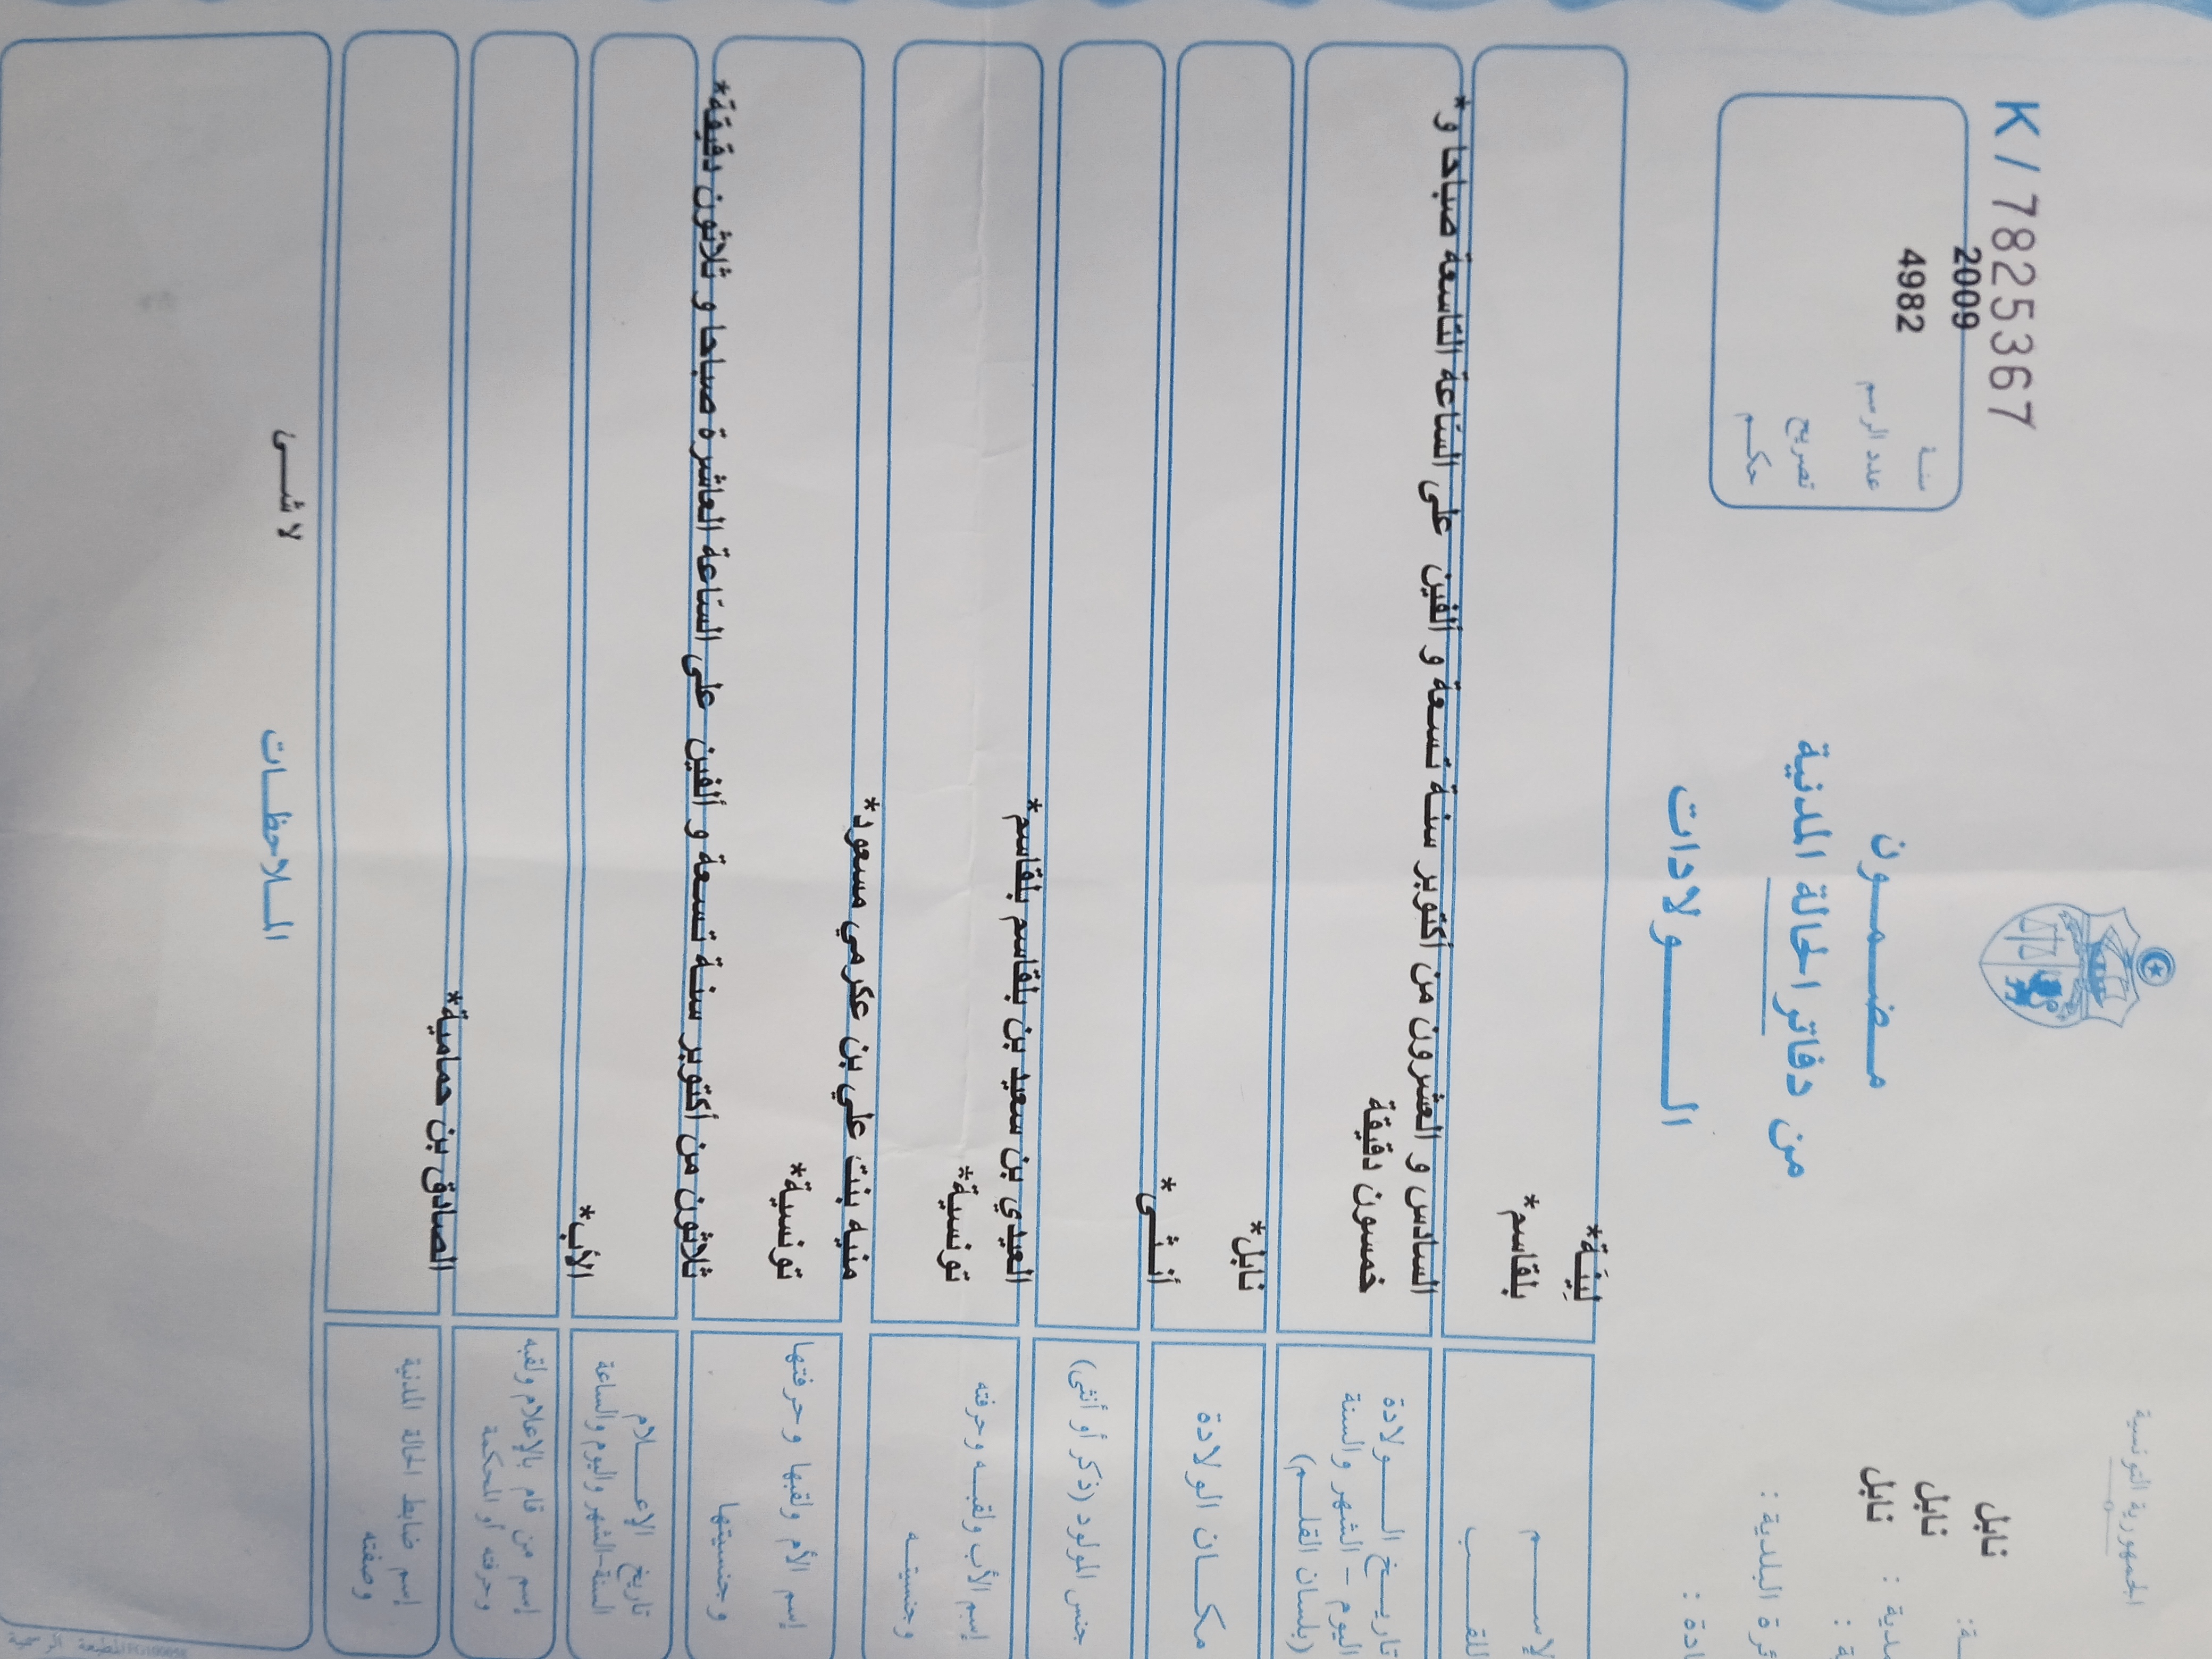 الجمهورية التونسية
نابل
نابل
نابل
K/78253​67
2009
4982
سنة
عدد الرسم
تصريح
حكم
مضمون
من دفاتر الحالة المدنية
الولادات
لِينَة*
الإسم
بلقاسم*
اللقب
السادس و العشرون من أكتوبر سنة تسعة و ألفين على الساعة التاسعة صباحا و*
خمسون دقيقة
تاريخ الولادة
اليوم - الشهر والسنة
(بلسان القلم)
نابل*
مكان الولادة
أنثى*
جنس المولود (ذكر أو أنثى)
العيدي بن سعيد بن بلقاسم بلقاسم*
تونسية*
إسم الأب ولقبه وحرفته
وجنسيته
منيه بنت علي بن عكرمي مسعود*
تونسية*
إسم الأم ولقبها وحرفتها
وجنسيتها
ثلاثون من أكتوبر سنة تسعة و ألفين على الساعة العاشرة صباحا و ثلاثون دقيقة*
تاريخ الإعلام
السنة-الشهر واليوم والساعة
الأب*
إسم من قام بالإعلام ولقبه
وحرفته أو المحكمة
الصادق بن حمامية*
إسم ضابط الحالة المدنية
وصفته
الملاحظات
لا شىء
المطبعة الرسمية